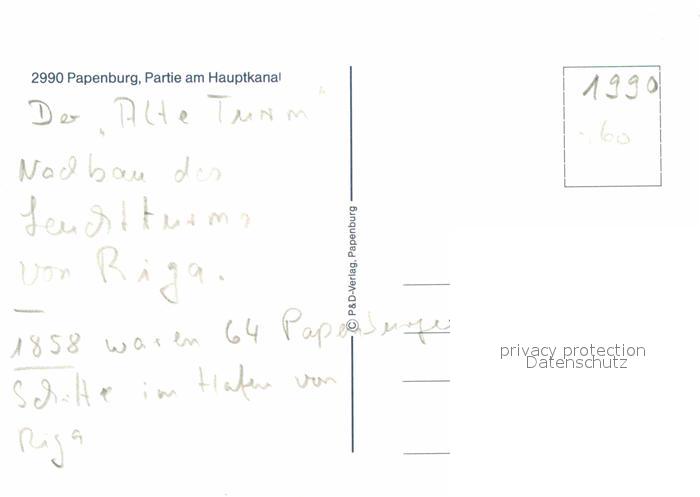 2990 Papenburg, Partie am Hauptkanal
Der „Alte Turm"
Nachbau des
Leuchtturms
von Riga.
1858 waren 64 Papenburger
Schiffe im Hafen von
Riga
© P&D-Verlag, Papenburg
1990
-,60
privacy protection
Datenschutz